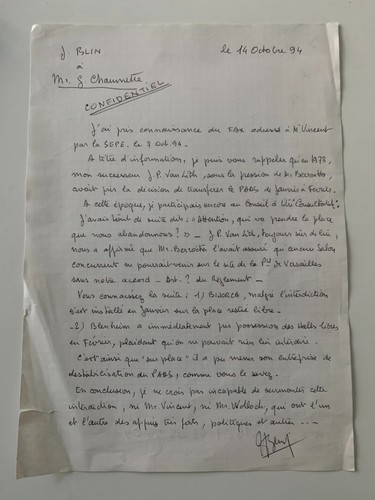 J. BLIN
à
Mr. J Chaumette
le 14 Octobre 94
CONFIDENTIEL
J'ai pris connaissance du FAX adressé à Mr Vincent
par la SEPE. le 7 Oct. 94.
A titre d'information, je puis vous rappeler qu'en 1978,
mon successeur J.P. Van Lith, sous la pression de Mr
avait pris la décision de transférer le PABS de Janvier à Février.
A cette époque, je participais encore au Conseil à titre Consultatif.
J'avais tout de suite dit: "Attention, qui va prendre la place
que nous abandonnons?" - J.P. Van Lith, toujours sûr de lui,
nous a affirmé que Mr. l'avait assuré qu'aucun Salon
concurrent ne pourrait venir sur le site de la Pte de Versailles
sans notre accord - Art. ? du Règlement -
Vous connaissez la suite: 1) malgré l'interdiction
s'est installé en Janvier sur la place restée libre.
- 2) Blenheim a immédiatement pris possession des Halls libres
en Février, plaidant qu'on ne pouvait rien lui interdire.
C'est ainsi que "sur place" il a pu mener son entreprise de
déstabilisation du PABS, comme vous le savez.
En conclusion, je ne crois pas incapable de surmonter cette
interaction, ni Mr. Vincent, ni Mr. Wolloch, qui ont l'un
et l'autre des appuis très forts, politiques et autres ...